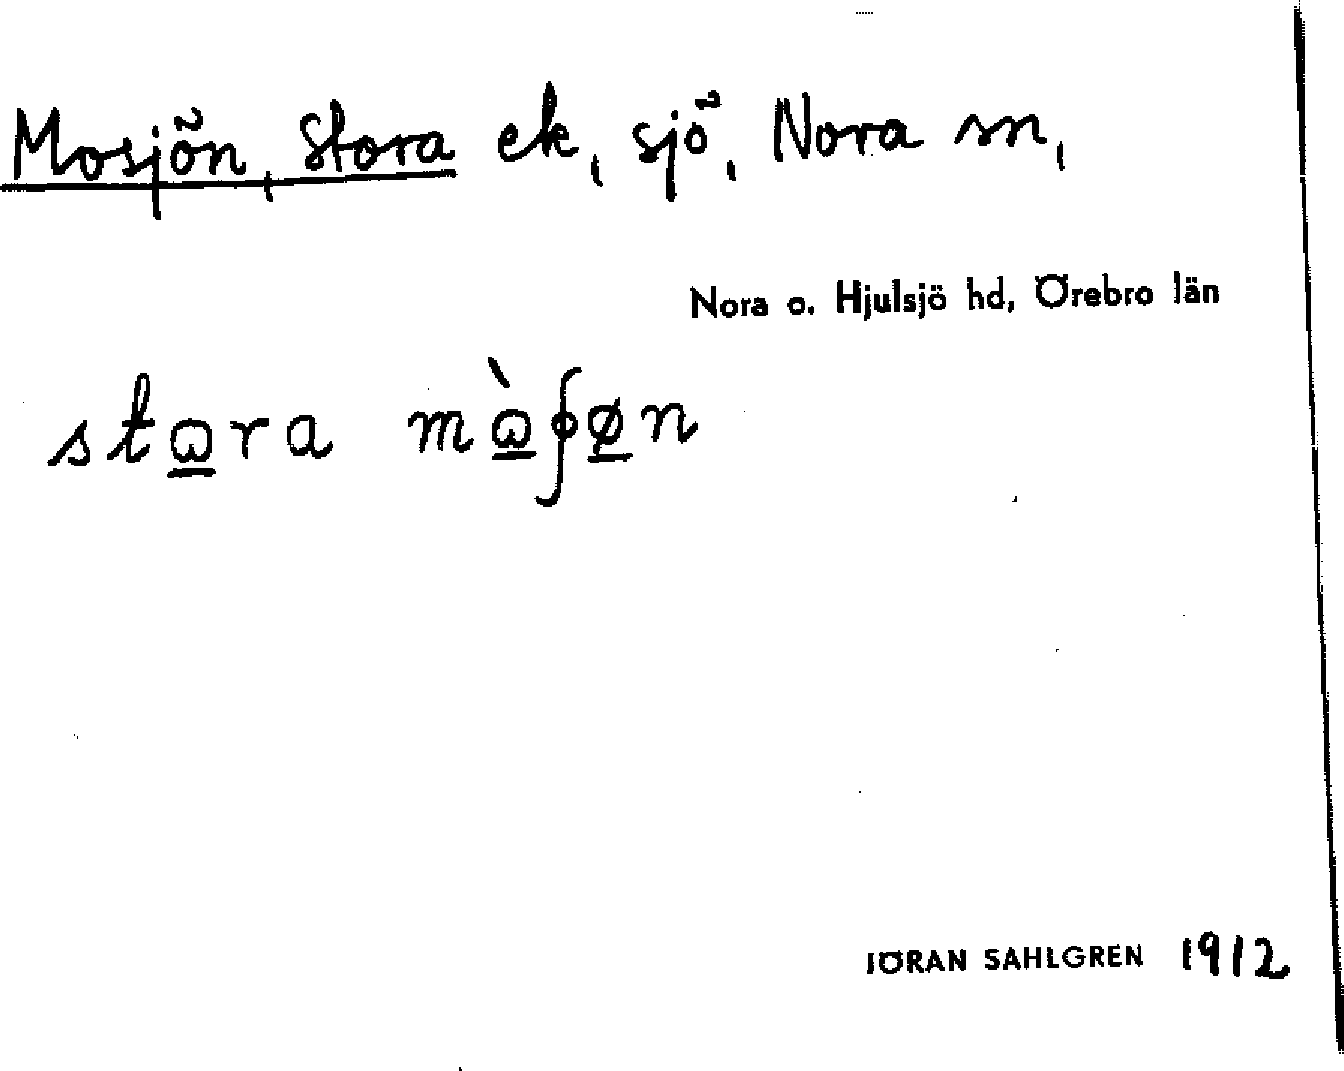 Mosjön, Stora ek, sjö, Nora sn,
Nora o. Hjulsjö hd, Örebro län
stɷ̱ra mɷ̱̀ʃø̱n
JÖRAN SAHLGREN 1912